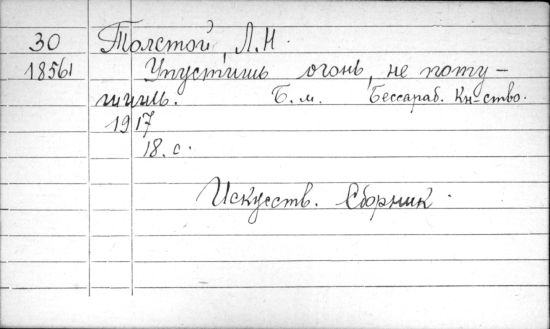 30 Толстой, Л.Н.
18561 Упустишь огонь, не поту-
шишь. Б.м. Бессараб. Кн-ство.
1917
18.с.
Искусств. Сборник.